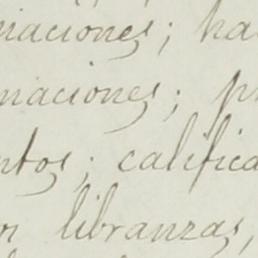 naciones; ha
naciones; p
ntos; califica
on libranzas,